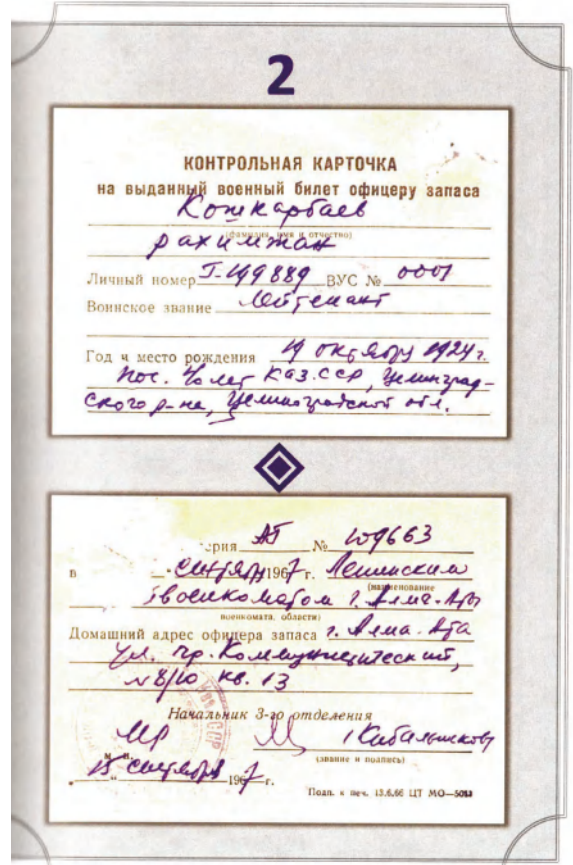 2
КОНТРОЛЬНАЯ КАРТОЧКА
на выданный военный билет офицеру запаса
Кошкарбаев
(фамилия, имя и отчество)
рахимжан
Личный номер Г-499889 ВУС № 0001
Воинское звание лейтенант
Год и место рождения 19 октября 1924 г.
пос. Каз.ССР, Целиноград-
ского р-на, Целиноградской обл.
ерия АГ № 109663
в сентября 1967 г. Ленинским
(наименование
военкоматом г. Алма-Аты
военкомата, области)
Домашний адрес офицера запаса г. Алма-Ата
ул. пр. Коммунистический,
кв. 13
Начальник 3-го отделения
(звание и подпись)
15 сентября 1967 г.
Подп. к печ. 13.6.66 ЦТ МО—